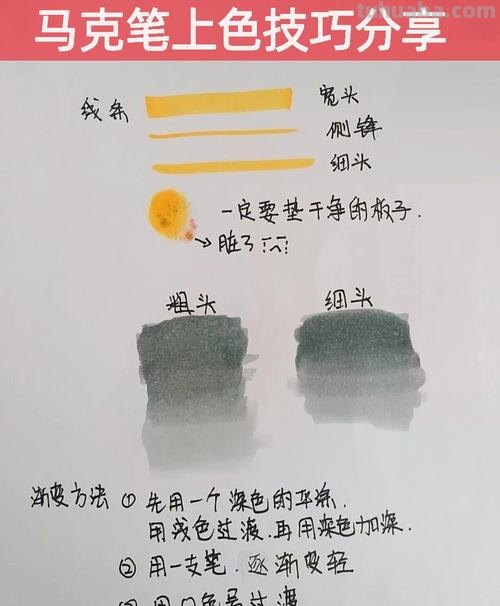 tuhuaba.com
马克笔上色技巧分享
线条
宽头
侧锋
细头
一定要垫干净的板子.
→脏了
粗头
细头
渐变方法 ① 先用一个深色的平涂.
用浅色过渡.再用深色加深.
② 用一支笔.逐渐变轻